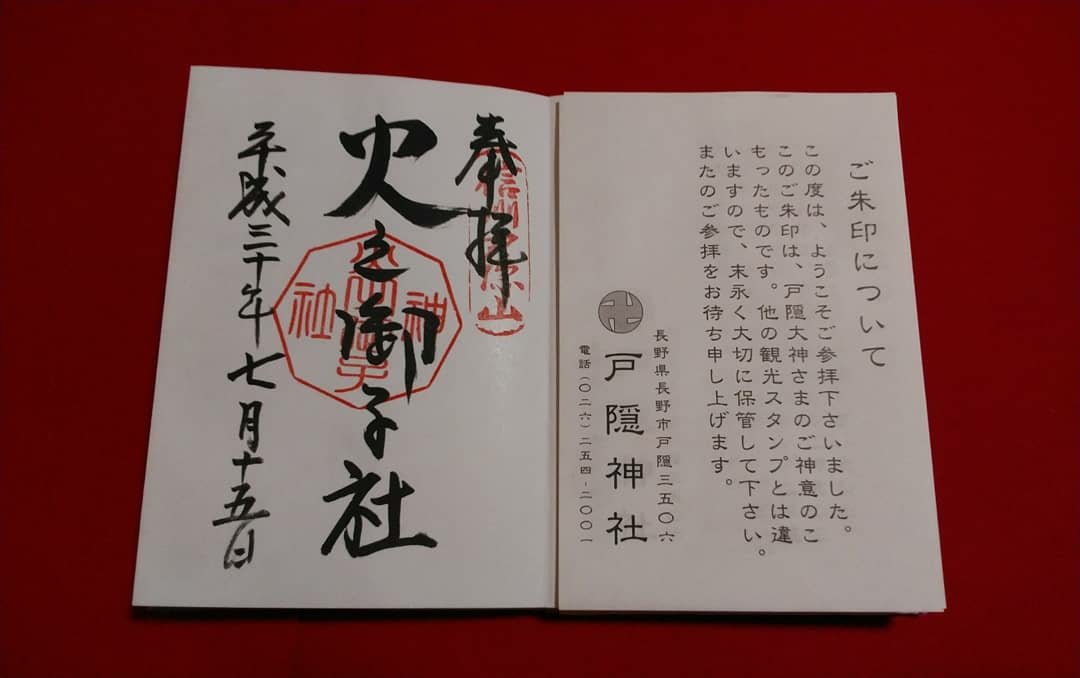 ご朱印について
この度は、ようこそご参拝下さいました。
このご朱印は、戸隠大神さまのご神意のこ
もったものです。他の観光スタンプとは違
いますので、末永く大切に保管して下さい。
またのご参拝をお待ち申し上げます。
長野県長野市戸隠三五〇六
戸隠神社
電話(〇二六)二五四-二〇〇一
奉拝
信州戸隠山
火之御子社
平成三十年七月十五日